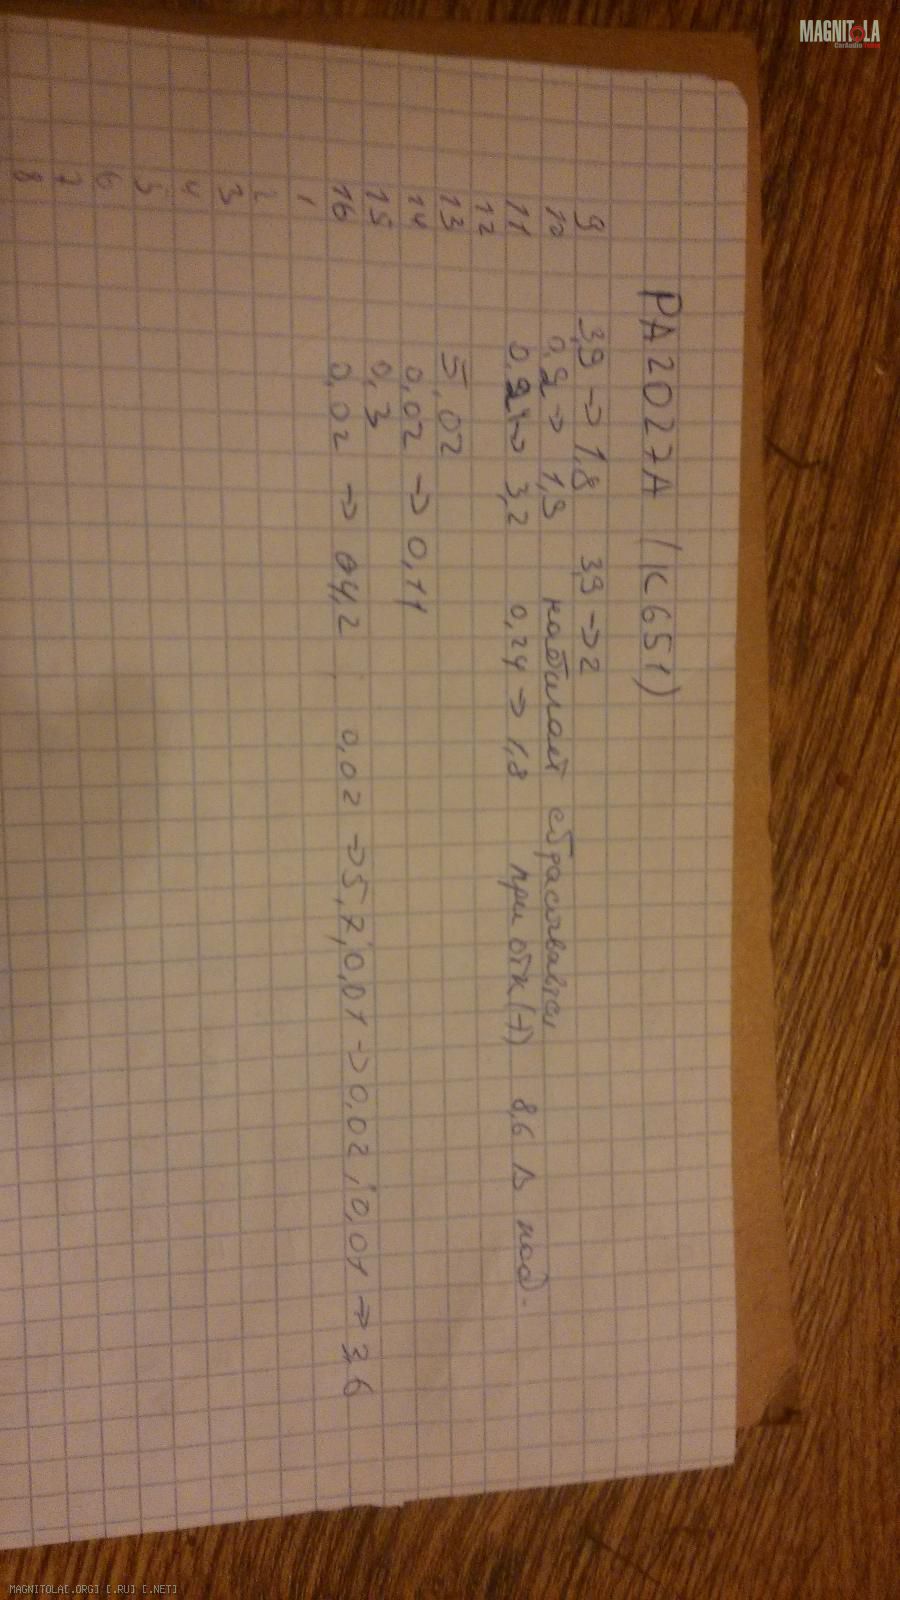 MAGNITOLA
CarAudio
PA2027A (IC651)
9 3,9 → 1,8 3,9 → 2
10 0,2 → 1,9 набирает сбрасывается
11 0,2 → 3,2 0,24 → 1,8 при отк (+) 8,6 В
12
13 5,02
14 0,02 → 0,11
15 0,3
16 0,02 → 4,2 0,02 → 5,7; 0,01 → 0,02; 0,01 → 3,6
1
2
3
4
5
6
7
8
MAGNITOLA[.ORG] [.RU] [.NET]